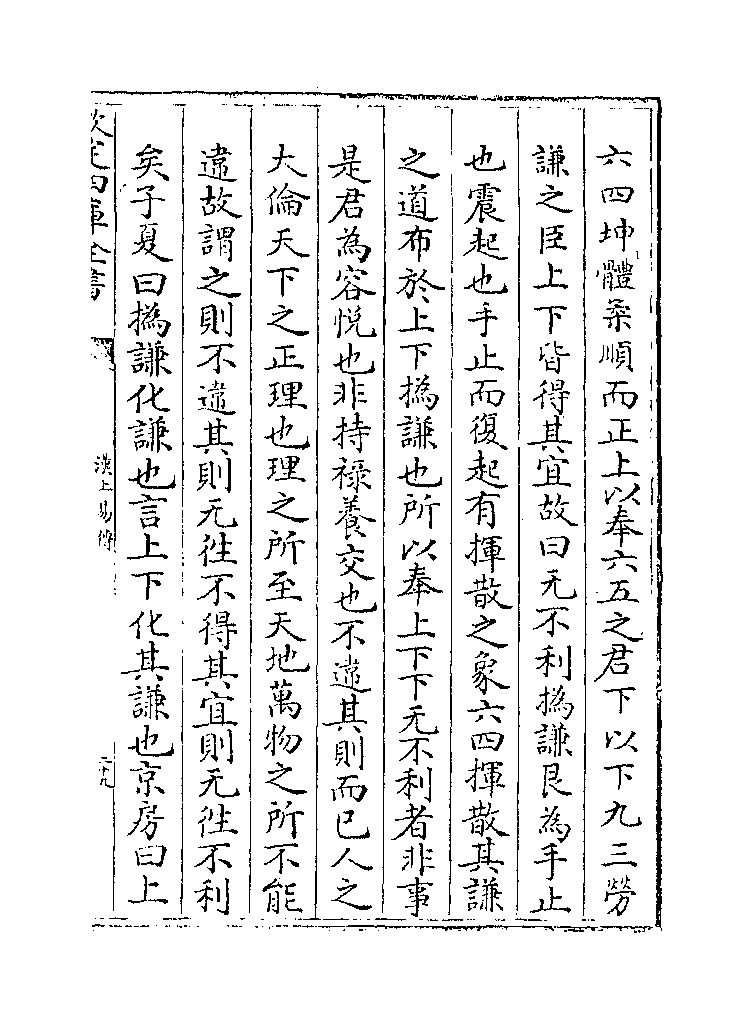 六四坤體柔順而正上以奉六五之君下以下九三勞
謙之臣上下皆得其宜故曰无不利撝謙艮為手止
也震起也手止而復起有揮散之象六四揮散其謙
之道布於上下撝謙也所以奉上下下无不利者非事
是君為容悅也非持禄養交也不違其則而已人之
大倫天下之正理也理之所至天地萬物之所不能
違故謂之則不違其則无徃不得其宜則无徃不利
矣子夏曰撝謙化謙也言上下化其謙也京房曰上
欽定四庫全書
漢上易傳